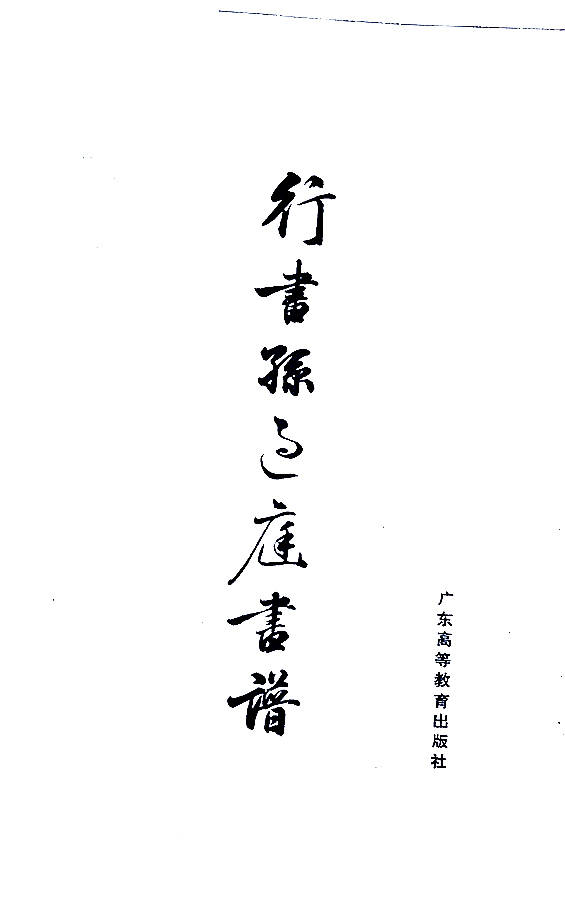 行書孫過庭書譜
广东高等教育出版社